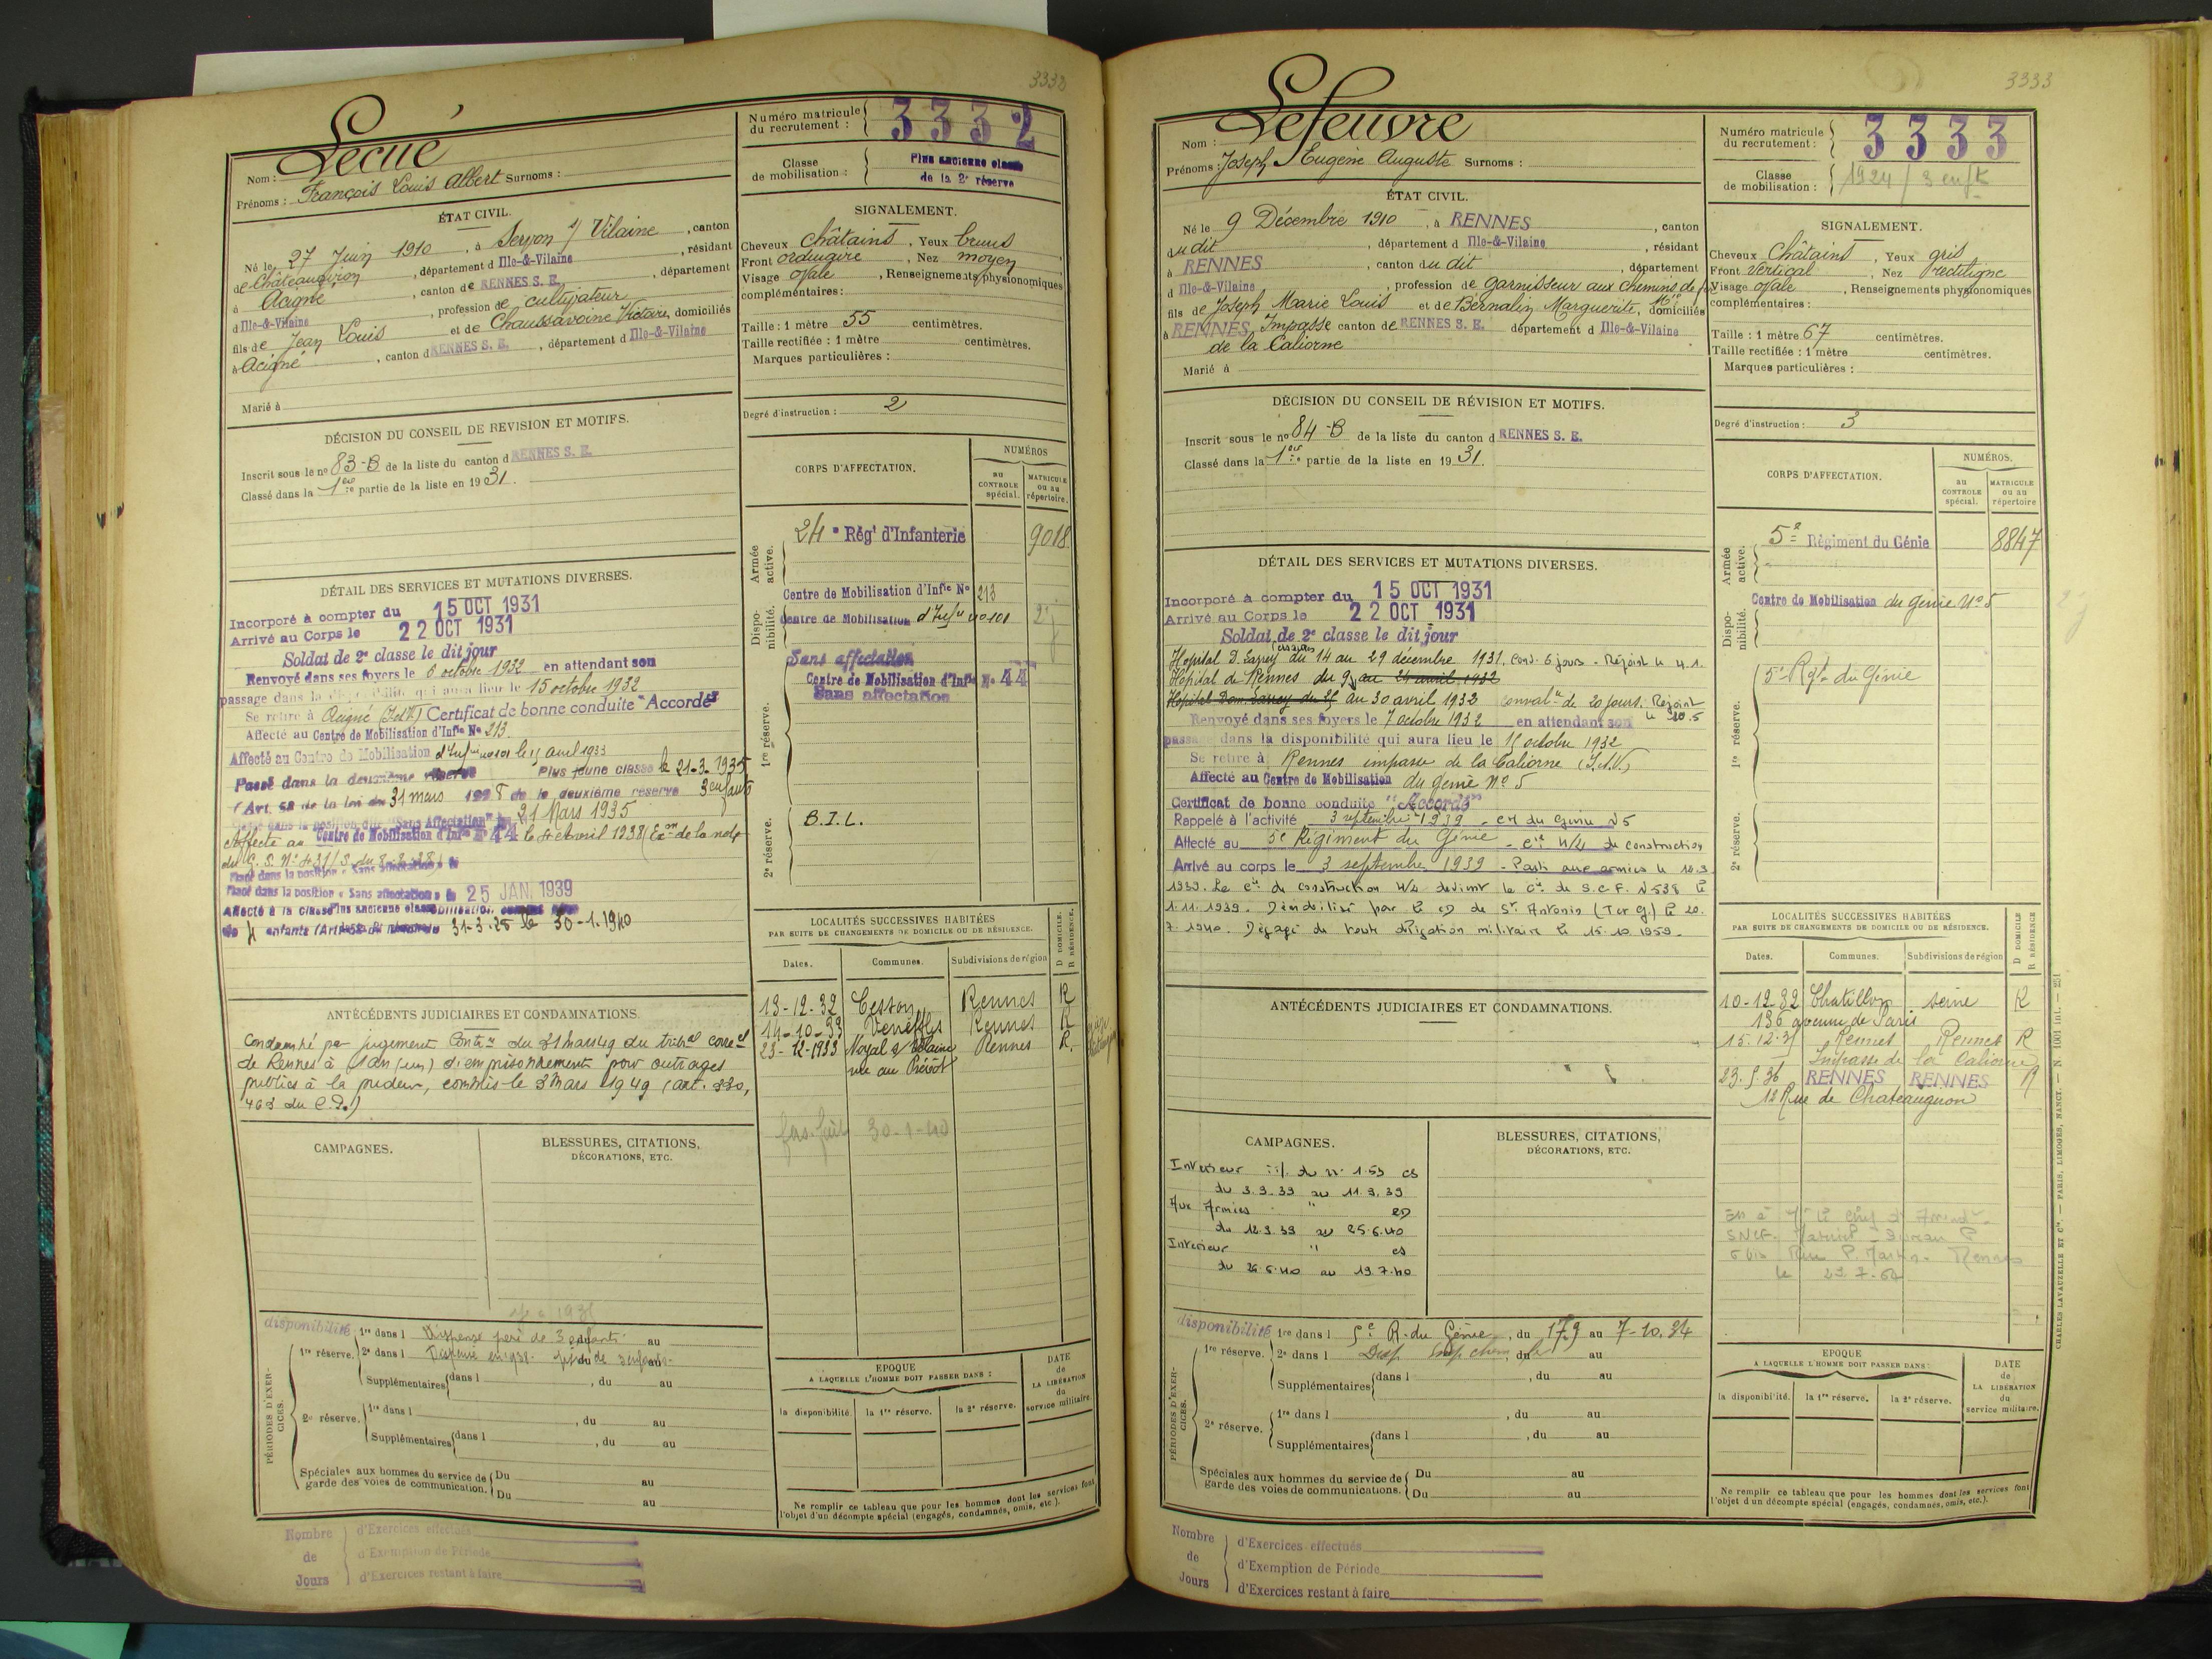 3332
Lecué
Nom :
Prénoms : François Louis Albert Surnoms :
ÉTAT CIVIL.
Né le 27 Juin 1910, à Servon s/ Vilaine, canton
de Châteaugiron, département d Ille-&-Vilaine, résidant
à Acigné, canton de RENNES S. E., département
d Ille-&-Vilaine, profession de cultivateur
fils de Jean Louis et de Chaussavoine Victoire, domiciliés
à Acigné, canton d RENNES S. E., département d Ille-&-Vilaine
Marié à
DÉCISION DU CONSEIL DE REVISION ET MOTIFS.
Inscrit sous le no 83-B de la liste du canton d RENNES S. E.
Classé dans la 1ère partie de la liste en 1931.
DÉTAIL DES SERVICES ET MUTATIONS DIVERSES.
Incorporé à compter du 15 OCT 1931
Arrivé au Corps le 22 OCT 1931
Soldat de 2e classe le dit jour
Renvoyé dans ses foyers le 6 octobre 1932 en attendant son
passage dans la disponibilité qui aura lieu le 15 octobre 1932
Se retire à Acigné Certificat de bonne conduite "Accordé"
Affecté au Centre de Mobilisation d'Infie No 213.
Affecté au Centre de Mobilisation d'Infie no 101 le 15 avril 1933
Passé dans la deuxième réserve Plus jeune classe le 21-3-1935
(Art. 58 de la loi du 31 mars 1928 de la deuxième réserve 3 enfants
"Sans Affectation" 21 Mars 1935
Affecté au Centre de Mobilisation d'Infie No 44 le 4 Avril 1938 (Exon de la note
du G. S. No 431/S du 8-2-38)
Placé dans la position « Sans affectation » le
Placé dans la position « Sans affectation » le 25 JAN. 1939
Affecté à la classe Plus ancienne classe
de 4 enfants (Art. 58 31-3-28 le 30-1-1940
ANTÉCÉDENTS JUDICIAIRES ET CONDAMNATIONS.
Condamné par jugement Contre du 31 mars 49 du tribal correl
de Rennes à 1 an (un) d'emprisonnement pour outrages
publics à la pudeur, commis le 3 Mars 1949 (art. 330,
463 du C.P.)
CAMPAGNES.
BLESSURES, CITATIONS,
DÉCORATIONS, ETC.
disponibilité
PÉRIODES D'EXERCICES.
1re réserve.
1re dans l Dispensé père de 3 enfants au
2e dans l Dispensé en 1938 père de 3 enfants au
Supplémentaires dans l , du au
2e réserve.
1re dans l , du au
Supplémentaires dans l , du au
Spéciales aux hommes du service de garde des voies de communication. Du au
Du au
Nombre de Jours
d'Exercices effectués
d'Exemption de Période
d'Exercices restant à faire
Numéro matricule du recrutement : 3332
Classe de mobilisation : Plus ancienne classe
de la 2e réserve
SIGNALEMENT.
Cheveux châtains, Yeux bruns
Front ordinaire, Nez moyen
Visage ovale, Renseignements physionomiques
complémentaires :
Taille : 1 mètre 55 centimètres.
Taille rectifiée : 1 mètre centimètres.
Marques particulières :
Degré d'instruction : 2
CORPS D'AFFECTATION.
NUMÉROS
au CONTROLE spécial.
MATRICULE ou au répertoire.
Armée active.
24e Régt d'Infanterie 9018
Disponibilité.
Centre de Mobilisation d'Infie No 213
Centre de Mobilisation d'Infie no 101
1re réserve.
Sans affectation
Centre de Mobilisation d'Infie No 44
Sans affectation
2e réserve.
B.I.L.
LOCALITÉS SUCCESSIVES HABITÉES
PAR SUITE DE CHANGEMENTS DE DOMICILE OU DE RÉSIDENCE.
Dates. Communes. Subdivisions de région D DOMICILE. R RÉSIDENCE.
13-12-32 Cesson Rennes R
14-10-33 Venèfles Rennes R
23-12-1933 Noyal s/ Vilaine Rennes R.
rue au Prévôt
30-1-40
EPOQUE
A LAQUELLE L'HOMME DOIT PASSER DANS :
la disponibilité. la 1re réserve. la 2e réserve.
DATE de LA LIBÉRATION du service militaire.
Ne remplir ce tableau que pour les hommes dont les services font
l'objet d'un décompte spécial (engagés, condamnés, omis, etc.).
3333
Lefeuvre
Nom :
Prénoms : Joseph Eugène Auguste Surnoms :
ÉTAT CIVIL.
Né le 9 Décembre 1910, à RENNES, canton
du dit, département d Ille-&-Vilaine, résidant
à RENNES, canton du dit, département
d Ille-&-Vilaine, profession de garnisseur aux chemins de f.
fils de Joseph Marie Louis et de Bernalin Marguerite, Mie, domiciliés
à RENNES, Impasse canton de RENNES S. E. département d Ille-&-Vilaine
de la Caliorne
Marié à
DÉCISION DU CONSEIL DE RÉVISION ET MOTIFS.
Inscrit sous le no 84-B de la liste du canton d RENNES S. E.
Classé dans la 1ère partie de la liste en 1931.
DÉTAIL DES SERVICES ET MUTATIONS DIVERSES.
Incorporé à compter du 15 OCT 1931
Arrivé au Corps le 22 OCT 1931
Soldat de 2e classe le dit jour
Hopital D. Larrey du 14 au 29 décembre 1931. Conv. 6 jours - Rejoint le 4.1.
Hôpital de Rennes du 9 au 24 avril 1932
Hôpital Dom. Larrey du 25 au 30 avril 1932 conval. de 20 jours. Rejoint
le 20.5
Renvoyé dans ses foyers le 7 octobre 1932 en attendant son
passage dans la disponibilité qui aura lieu le 15 octobre 1932
Se retire à Rennes impasse de la Caliorne (I.&V.)
Affecté au Centre de Mobilisation du génie No 5
Certificat de bonne conduite "Accordé"
Rappelé à l'activité 3 septembre 1939 - CM du Génie N 5
Affecté au 5e Régiment du Génie - Cie 4/4 de construction
Arrivé au corps le 3 septembre 1939 - Parti aux armées le 12.9
1939. La Cie de construction 4/4 devient la Cie de S.C.F. N 538 le
1.11.1939. Démobilisé par le CD de St Antonin (T et G.) le 20.
7.1940. Dégagé de toute obligation militaire le 15.10.1959.
ANTÉCÉDENTS JUDICIAIRES ET CONDAMNATIONS.
CAMPAGNES.
Intérieur c/ CS
du 3.9.39 au 11.9.39
Aux Armées " CD
du 12.9.39 au 25.6.40
Intérieur " CS
du 26.6.40 au 19.7.40
BLESSURES, CITATIONS,
DÉCORATIONS, ETC.
disponibilité
PÉRIODES D'EXERCICES.
1re réserve.
1re dans l 5e R. du Génie, du 17.9 au 7-10.34
2e dans l Disp , du au
Supplémentaires dans l , du au
2e réserve.
1re dans l , du au
Supplémentaires dans l , du au
Spéciales aux hommes du service de garde des voies de communications. Du au
Du au
Nombre de Jours
d'Exercices effectués
d'Exemption de Période
d'Exercices restant à faire
Numéro matricule du recrutement : 3333
Classe de mobilisation : 1924 /
SIGNALEMENT.
Cheveux Châtains, Yeux gris
Front vertical, Nez rectiligne
Visage ovale, Renseignements physionomiques
complémentaires :
Taille : 1 mètre 67 centimètres.
Taille rectifiée : 1 mètre centimètres.
Marques particulières :
Degré d'instruction : 3
CORPS D'AFFECTATION.
NUMÉROS.
au CONTROLE spécial.
MATRICULE ou au répertoire
Armée active.
5e Régiment du Génie 8847
Disponibilité.
Centre de Mobilisation du génie No 5
1re réserve.
5e Rgt du Génie
2e réserve.
LOCALITÉS SUCCESSIVES HABITÉES
PAR SUITE DE CHANGEMENTS DE DOMICILE OU DE RÉSIDENCE.
Dates. Communes. Subdivisions de région D DOMICILE R RÉSIDENCE
10-12-32 Chatillon Seine R
136 avenue de Paris
Rennes Rennes R
Impasse de la Caliorne
23.5.36 RENNES RENNES R
12 Rue de Chateaugiron
EPOQUE
A LAQUELLE L'HOMME DOIT PASSER DANS :
la disponibilité. la 1re réserve. la 2e réserve.
DATE de LA LIBÉRATION du service militaire.
Ne remplir ce tableau que pour les hommes dont les services font
l'objet d'un décompte spécial (engagés, condamnés, omis, etc.).
CHARLES LAVAUZELLE ET Cie. — PARIS, LIMOGES, NANCY.